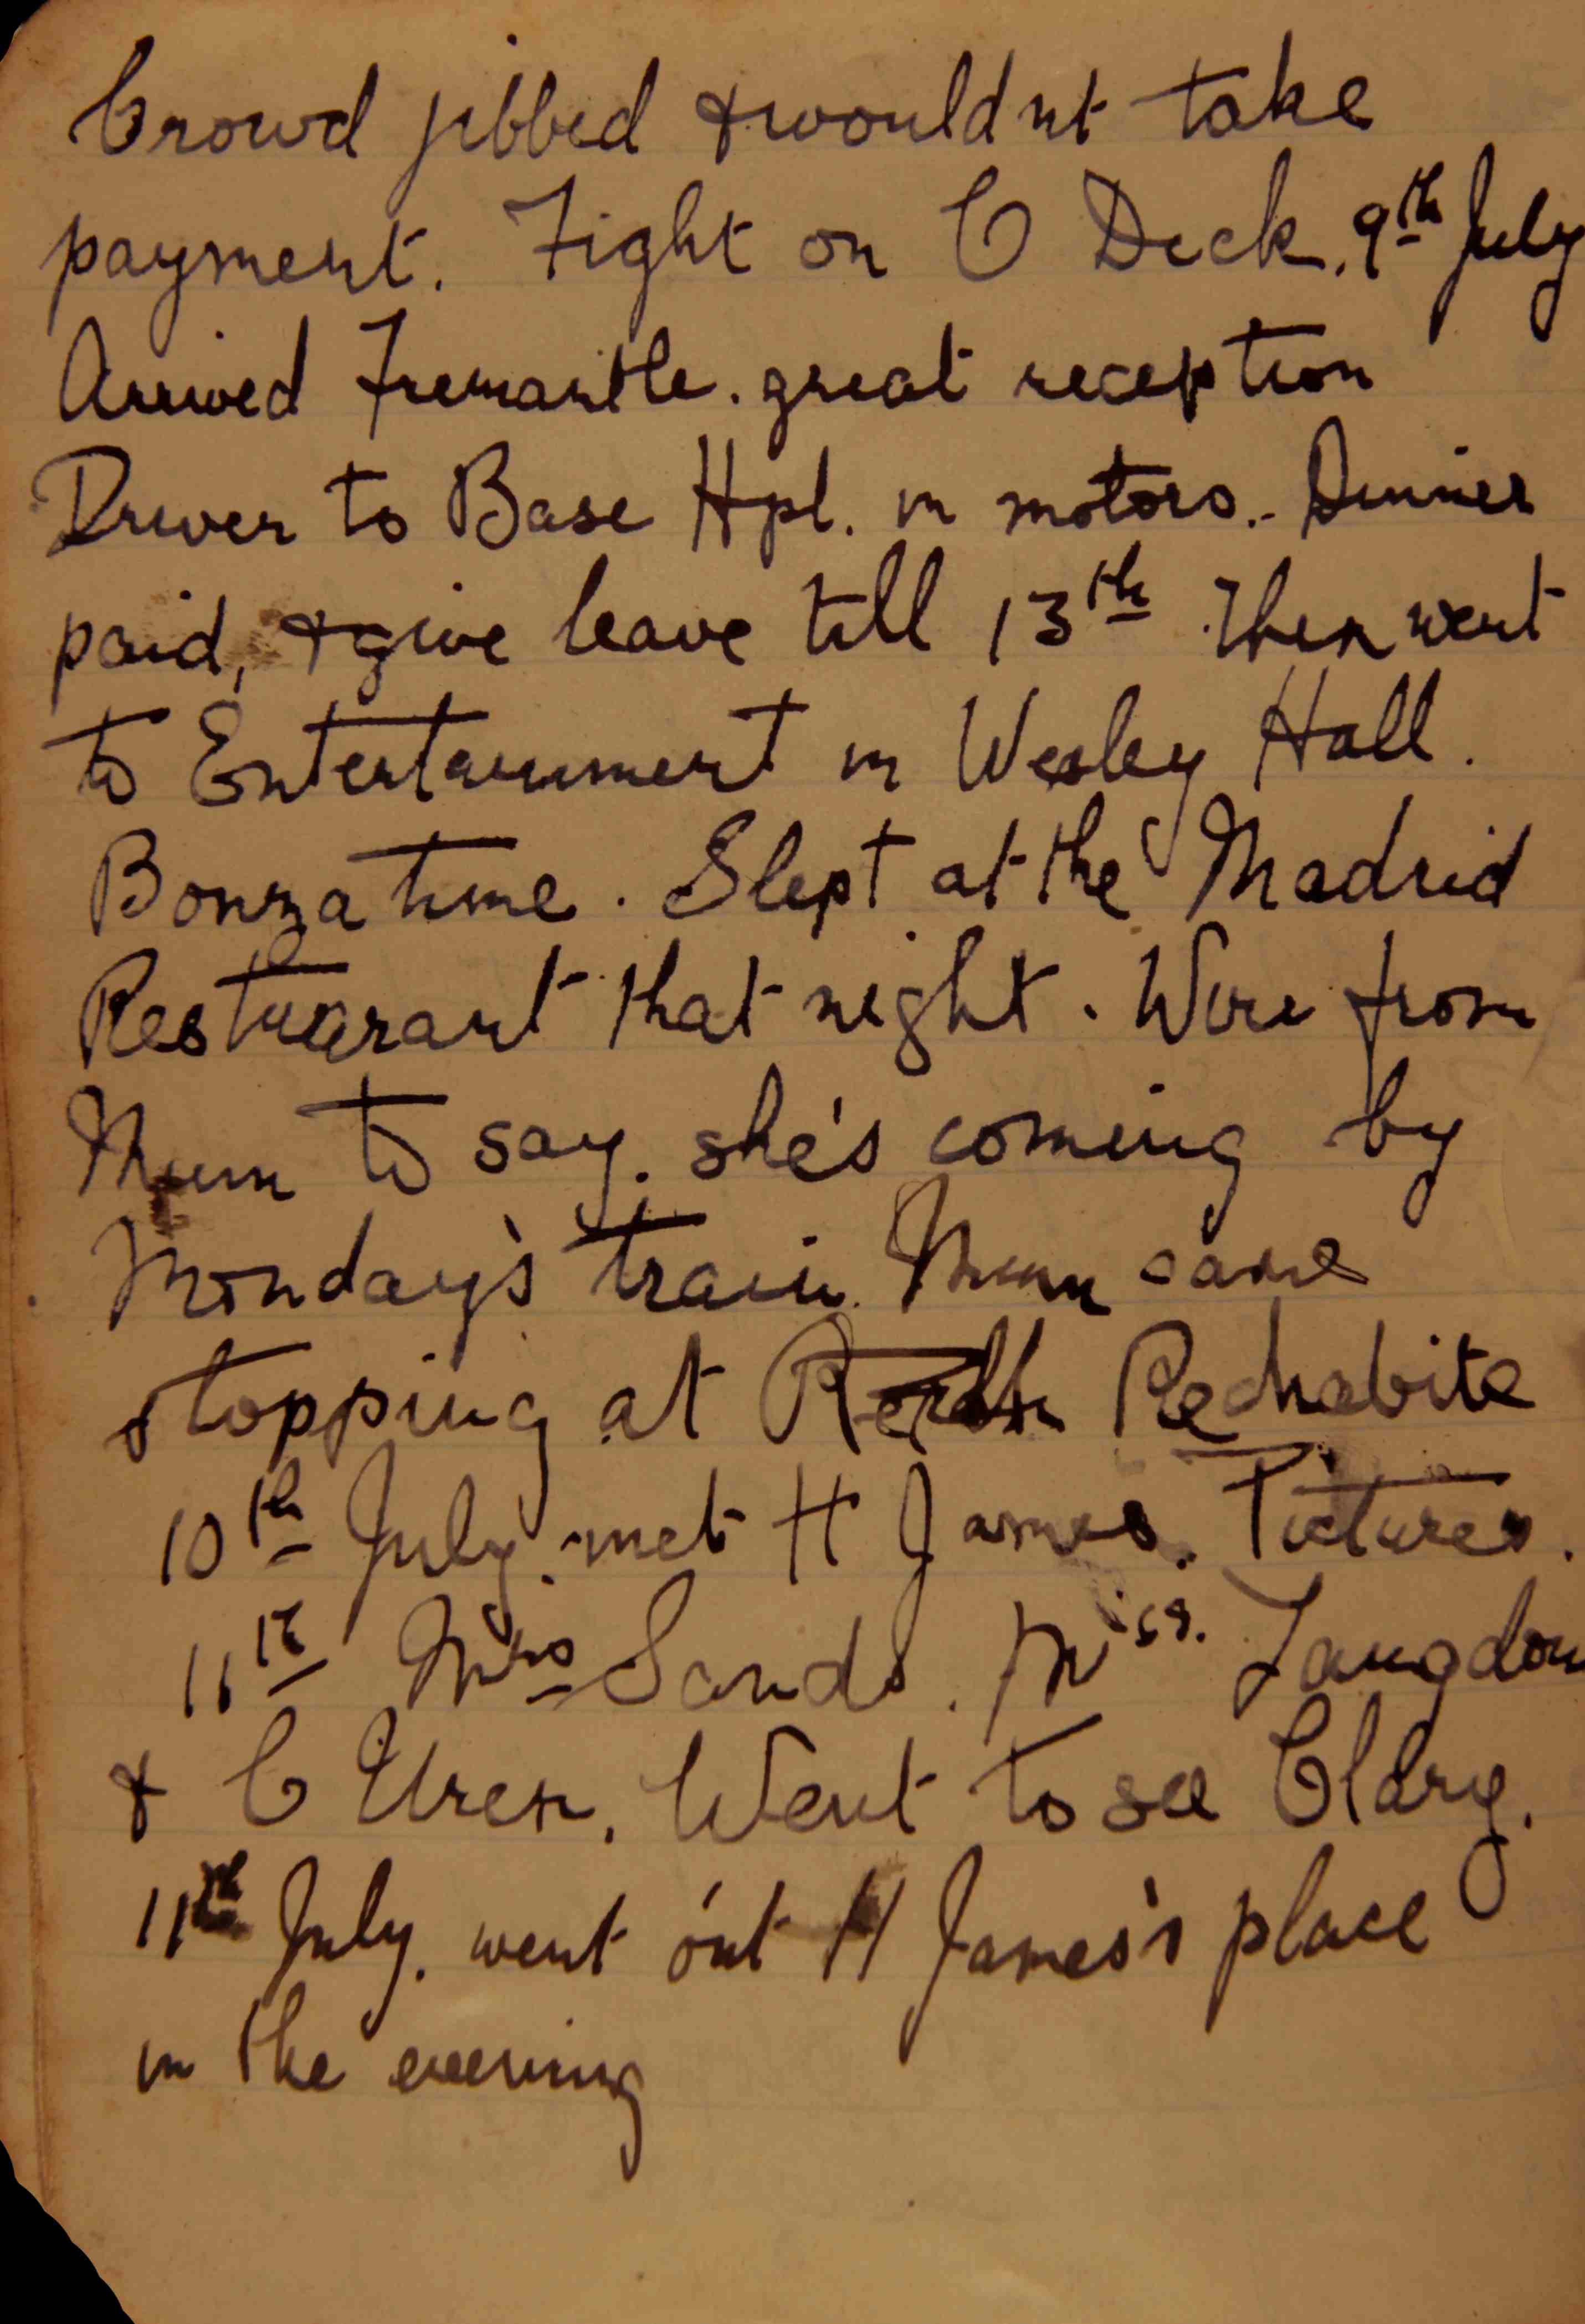 Crowd jibbed & wouldnt take
payment. Fight on C Deck. 9th July
Arrived Fremantle. great reception
Driven to Base Hpl. in motors. Dinner
paid, & give leave till 13th Then went
to Entertainment in Wesley Hall.
Bonza time. Slept at the Madrid
Restuarant that night. Wire from
Mum to say. she's coming by
Monday's train. Mum came
stopping at Rechabite
10th July. met H James. Pictures.
11th Mrs Sands. Miss. Langdon
& C Uren. Went to see Clary.
11th July. went out H James's place
in the evening